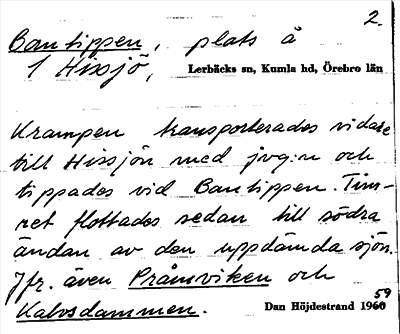 2.
Bantippen, plats å
1 Hissjö, Lerbäcks sn, Kumla hd, Örebro län
Krampen transporterades vidare
till Hissjön med jvg:n och
tippades vid Bantippen. Tim-
ret flottades sedan till södra
ändan av den uppdämda sjön.
Jfr. även Pråmviken och
Kalvsdammen.
Dan Höjdestrand 1960 59